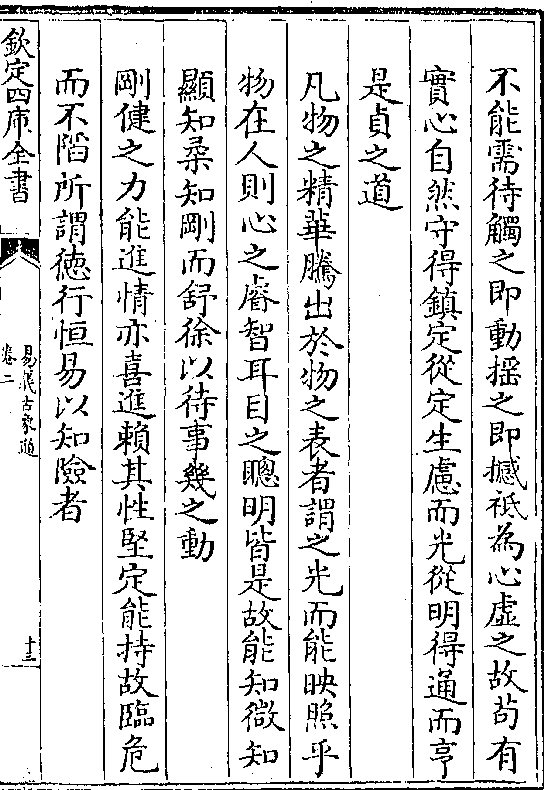 不能需待觸之即動揺之即撼祗為心虛之故茍有
實心自然守得鎮定從定生慮而光從明得通而亨
是貞之道
凡物之精華騰出於物之表者謂之光而能映照乎
物在人則心之睿智耳目之聰明皆是故能知微知
顯知柔知剛而舒徐以待事幾之動
剛健之力能進情亦喜進賴其性堅定能持故臨危
而不陷所謂德行恒易以知險者
欽定四庫全書
卷二
十三